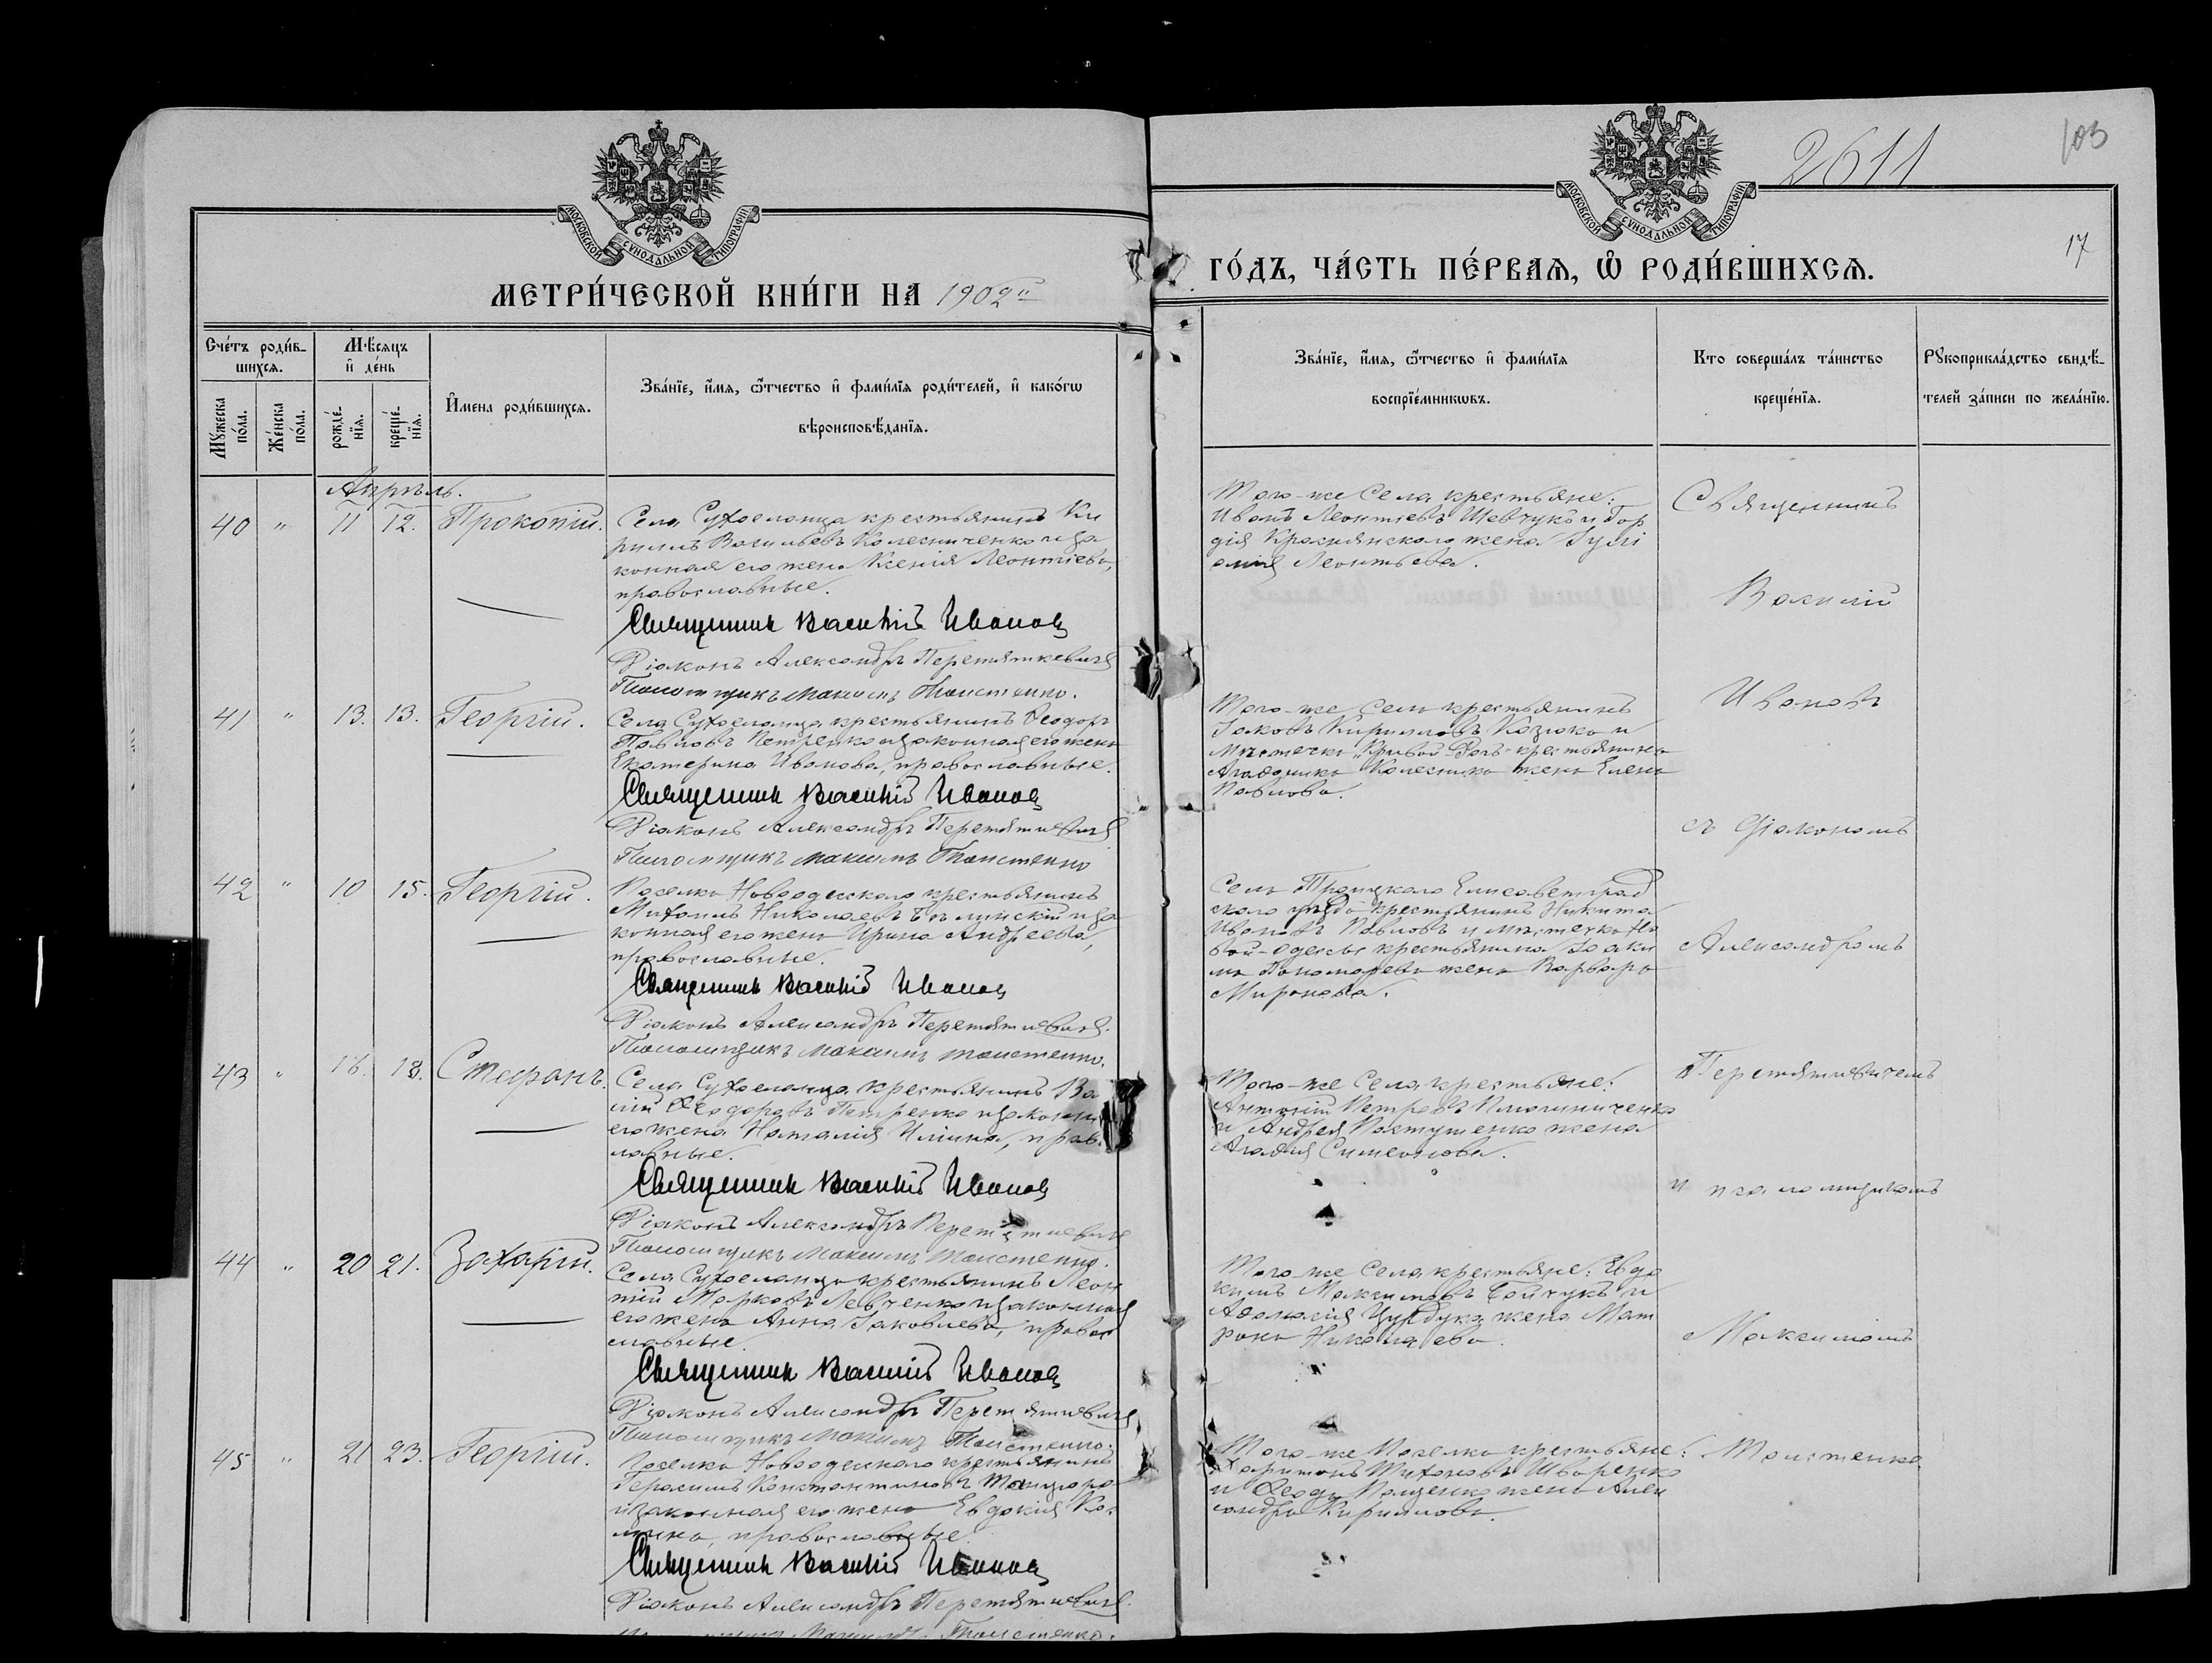 2611
103
17
МОСКОВСКОЙ СѴНОДАЛЬНОЙ ТИПОГРАФІИ
МОСКОВСКОЙ СѴНОДАЛЬНОЙ ТИПОГРАФІИ
МЕТРИ́ЧЕСКОЙ КНИ́ГИ НА 1902й
ГО́ДЪ, ЧА́СТЬ ПЕ́РВАѦ, Ѽ РОДИ́ВШИХСѦ.
Сче́тъ роди́в-
шихсѧ.
Мꙋ́жеска по́ла.
Же́нска по́ла.
Мѣ́сѧцъ
и҆ де́нь
рожде́-
нїѧ.
креще́-
нїѧ.
И҆мена роди́вшихсѧ.
Зва́нїе, и҆́мѧ, ѻ҆́тчество и҆ фами́лїѧ роди́телей, и҆ како́гѡ
вѣроисповѣ́данїѧ.
Зва́нїе, и҆́мѧ, ѻ҆́тчество и҆ фами́лїѧ
воспрїе́мникѡвъ.
Кто соверша́лъ та́инство
креще́нїѧ.
Рꙋкоприкла́дство свидѣ́-
телей за́писи по жела́нїю.
Апрѣль.
40 " 11 12. Прокопій.
Села Сухоеланца крестьянинъ Ки
риллъ Васильевъ Колесниченко и за
конная его жена Ксенія Леонтіева,
православные.
Священник Василій Иванов
Діаконъ Александръ Перетяткевичъ
Псаломщикъ Максимъ Толстенко.
Того-же Села крестьяне:
Иванъ Леонтіевъ Шевчукъ и Гор
дія Краснянскаго жена Іулі
анія Леонтьева.
41 " 13. 13. Георгій.
Села Сухоеланца крестьянинъ Ѳеодоръ
Павловъ Петренко и законная его жена
Екатерина Иванова, православные.
Священник Василій Иванов
Діаконъ Александръ Перетяткевичъ
Псаломщикъ Максимъ Толстенко
Того-же Села крестьянинъ
Іаковъ Кирилловъ Козюка и
мѣстечка Кривой Рогъ крестьянина
Колесника жена Елена
Павлова.
42 " 10 15. Георгій.
Поселка Новоодесскаго крестьянинъ
Михаилъ Николаевъ и за
конная его жена Ирина Андреева,
православные.
Священник Василій Иванов
Діаконъ Александръ Перетяткевичъ.
Псаломщикъ Максимъ Толстенко.
Села Троицкаго Елисаветград
скаго уѣзда крестьянинъ Никита
Ивановъ Павловъ и мѣстечка Но
вой-Одессы крестьянина Іоаки
ма Пономарева жена Варвара
Миронова.
43 " 16. 18. Стефанъ.
Села Сухоеланца крестьянинъ Ва
лій Ѳеодоровъ Петренко и законн
его жена Наталія Ильина, прав
лавные.
Священник Василій Иванов
Діаконъ Александръ Перетяткевичъ
Псаломщикъ Максимъ Толстенко.
Того-же Села крестьяне:
Антоній Петровъ
и Андрея Пастушенко жена
Агафія Симеонова.
44 " 20 21. Захарій.
Села Сухоеланца крестьянинъ Леон
тій Марковъ Левченко и законная
его жена Анна Іаковлева, право
славные.
Священник Василій Иванов
Діаконъ Александръ Перетяткевичъ
Псаломщикъ Максимъ Толстенко.
Того-же Села крестьяне: Евдо
кимъ Максимовъ Бойчукъ и
жена Мат
рона Николаева.
45 " 21 23. Георгій.
Поселка Новоодесскаго крестьянинъ
Герасимъ Константиновъ
и законная его жена Евдокія
православные.
Священник Василій Иванов
Діаконъ Александръ Перетяткевичъ.
Максимъ Толстенко.
Того-же Поселка крестьяне:
Харитонъ Тихоновъ
и жена Алек
сандра Кириллова.
Священникъ
Василій
Ивановъ
съ діакономъ
Александромъ
Перетяткевичемъ
и псаломщикомъ
Максимомъ
Толстенко.